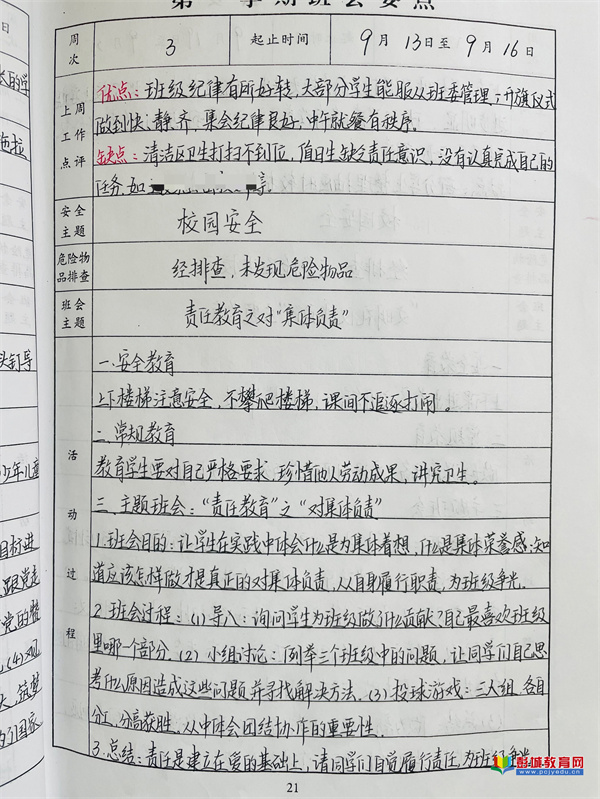 学期班会要点
周次 3 起止时间 9月13日至9月16日
上周工作点评
优点：班级纪律有所好转，大部分学生能服从班委管理，升旗仪式
做到快、静、齐，集会纪律良好，中午就餐有秩序。
缺点：清洁区卫生打扫不到位，值日生缺乏责任意识，没有认真完成自己的
任务，如 等。
安全主题 校园安全
危险物品排查 经排查，未发现危险物品
班会主题 责任教育之对“集体负责”
活动过程
一.安全教育
上下楼梯注意安全，不攀爬楼梯，课间不追逐打闹。
二.常规教育
教育学生要对自己严格要求，珍惜他人劳动成果，讲究卫生。
三.主题班会：“责任教育”之“对集体负责”
1.班会目的：让学生在实践中体会什么是为集体着想，什么是集体荣誉感；知
道应该怎样做才是真正的对集体负责，从自身履行职责，为班级争光。
2.班会过程：(1)导入：询问学生为班级做了什么贡献？自己最喜欢班级
里哪一个部分。(2)小组讨论：列举三个班级中的问题，让同学们自己思
考什么原因造成这些问题并寻找解决方法。(3)投球游戏：三人组，各自
分工，分高获胜，从中体会团结协作的重要性。
3.总结：责任是建立在爱的基础上，请同学们自觉履行责任，为班级争光
21
彭城教育网
www.pcjyedu.com